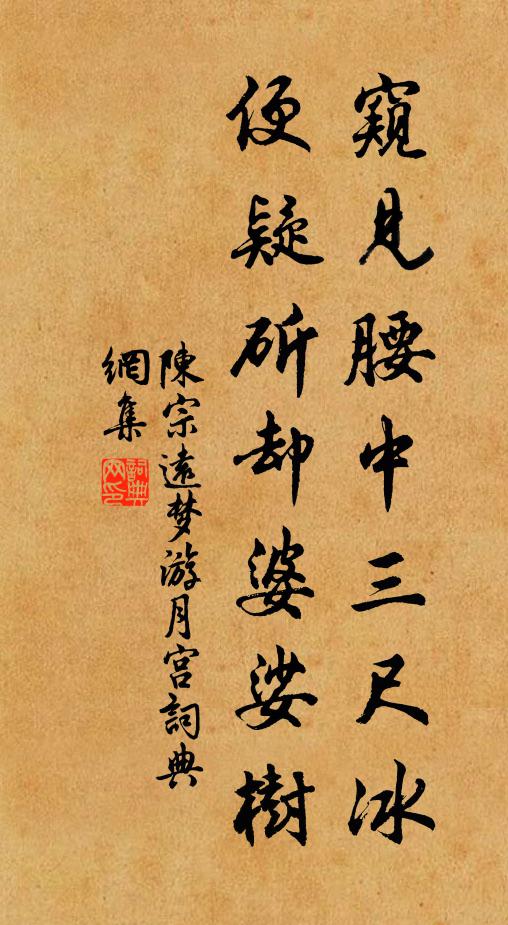 窺見腰中三尺冰
便疑斫却婆娑樹
陳宗遠梦游月宮詞典
網集
詞典
网印